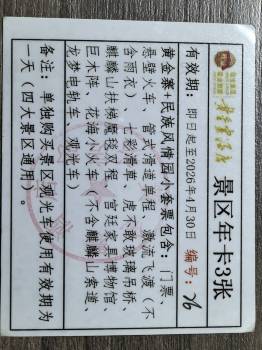 景区年卡3张
有效期：即日起至2026年4月30日 编号：76
黄金寨·民族风情园小套票包含：门票、
悬壁火车、管式滑道单程、激流飞渡（不
含雨衣）、七彩滑草、虎不敢玻璃吊桥、
麒麟山扶梯魔毯双程、宫廷家具博物馆、
巨木阵、花海小火车（不含麒麟山索道、
龙梦电轨车、观光车）
备注：单独购买景区观光车使用有效期为
一天（四大景区通用）。